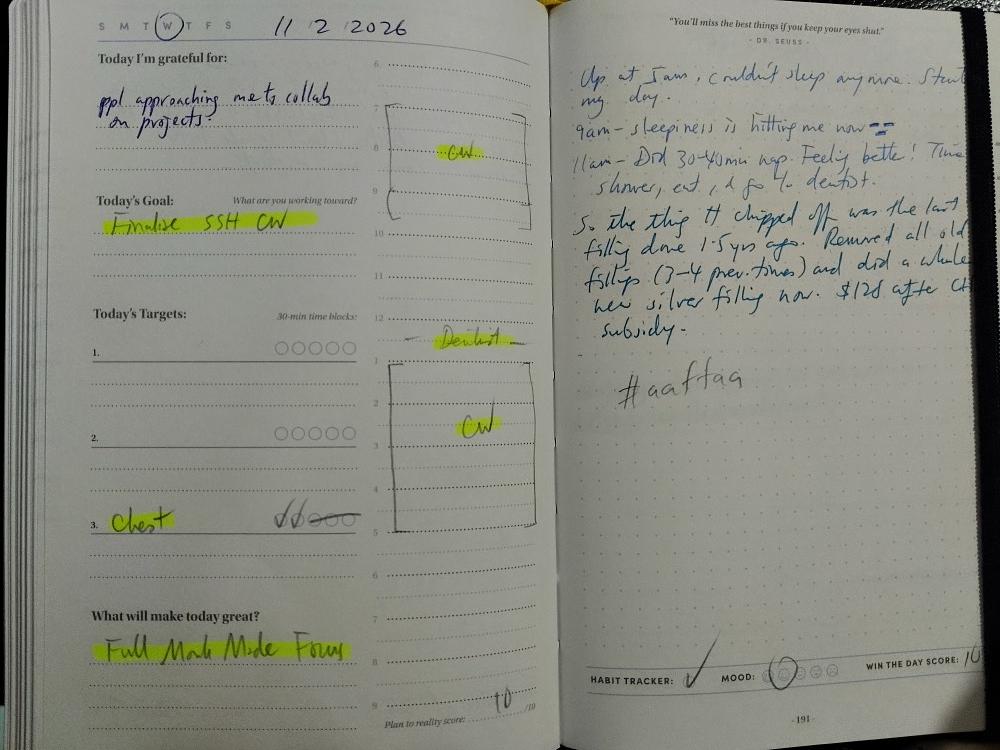 S M T W T F S 11/2/2026
Today I'm grateful for:
ppl approaching me to collab
on projects.
Today's Goal: What are you working toward?
Finalise SSH CW
Today's Targets: 30-min time blocks:
1.
2.
3. Chest
What will make today great?
Full Monk Mode Focus
6
7
8 CW
9
10
11
12
Dentist
1
2
CW
3
4
5
6
7
8
9
Plan to reality score: 10 /10
"You'll miss the best things if you keep your eyes shut."
- DR. SEUSS -
Up at 5am, couldn't sleep anymore. Start
my day.
9am - sleepiness is hitting me now
11am - Did 30-40min nap. Feeling better! Time
shower, eat, & go to dentist.
So the thing tt chipped off was the last
filling done 1.5yrs ago. Removed all old
fillings (3-4 prev. times) and did a whole
new silver filling now. $128 after
subsidy.
#aaftaa
HABIT TRACKER: MOOD: WIN THE DAY SCORE: 10
- 191 -